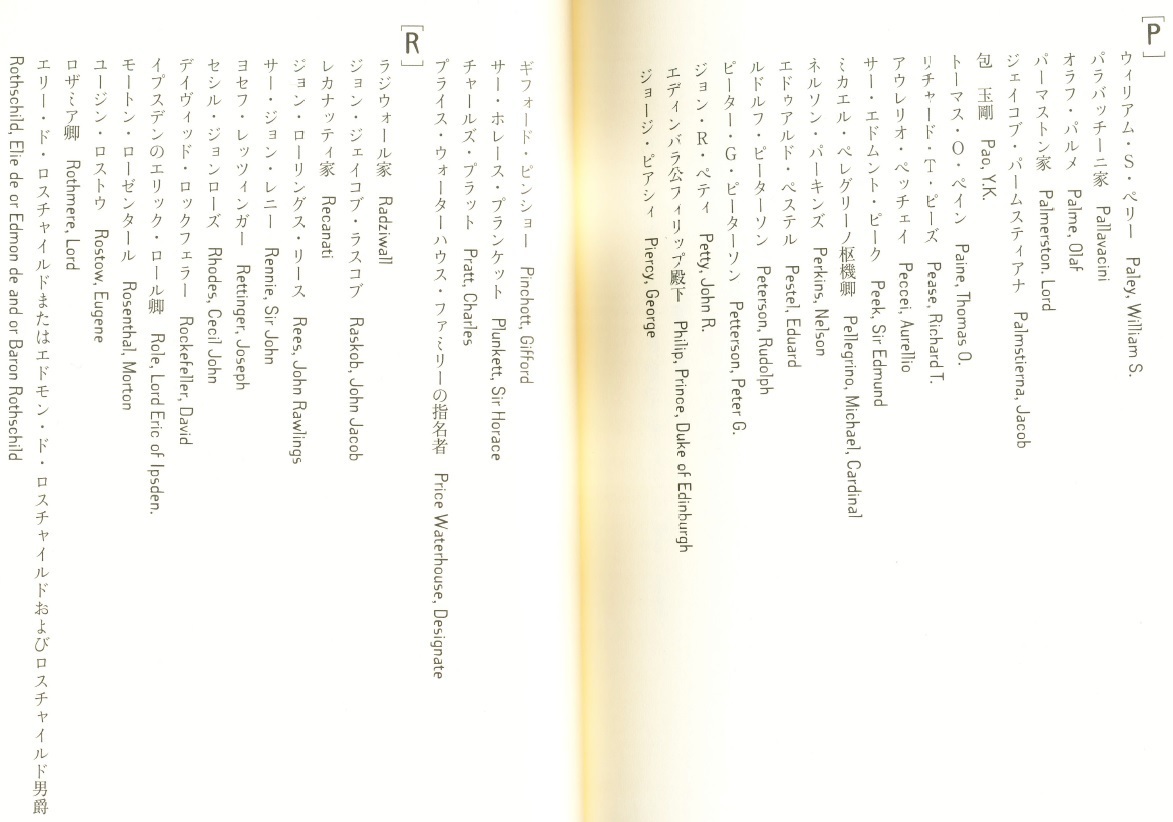 [P]
ウィリアム・S・ペリー Paley, William S.
パラバッチーニ家 Pallavacini
オラフ・パルメ Palme, Olaf
パーマストン家 Palmerston, Lord
ジェイコブ・パームスティアナ Palmstierna, Jacob
包 玉剛 Pao, Y.K.
トーマス・O・ペイン Paine, Thomas O.
リチャード・T・ピーズ Pease, Richard T.
アウレリオ・ペッチェイ Peccei, Aurellio
サー・エドムント・ピーク Peek, Sir Edmund
ミカエル・ペレグリーノ枢機卿 Pellegrino, Michael, Cardinal
ネルソン・パーキンズ Perkins, Nelson
エドゥアルド・ペステル Pestel, Eduard
ルドルフ・ピーターソン Peterson, Rudolph
ピーター・G・ピーターソン Petterson, Peter G.
ジョン・R・ペティ Petty, John R.
エディンバラ公フィリップ殿下 Philip, Prince, Duke of Edinburgh
ジョージ・ピアシィ Piercy, George
ギフォード・ピンショー Pinchott, Gifford
サー・ホレース・プランケット Plunkett, Sir Horace
チャールズ・プラット Pratt, Charles
プライス・ウォーターハウス・ファミリーの指名者 Price Waterhouse, Designate
[R]
ラジウォール家 Radziwall
ジョン・ジェイコブ・ラスコブ Raskob, John Jacob
レカナッティ家 Recanati
ジョン・ローリングス・リース Rees, John Rawlings
サー・ジョン・レニー Rennie, Sir John
ヨセフ・レッツィンガー Rettinger, Joseph
セシル・ジョンローズ Rhodes, Cecil John
デイヴィッド・ロックフェラー Rockefeller, David
イプスデンのエリック・ロール卿 Role, Lord Eric of Ipsden.
モートン・ローゼンタール Rosenthal, Morton
ユージン・ロストウ Rostow, Eugene
ロザミア卿 Rothmere, Lord
エリー・ド・ロスチャイルドまたはエドモン・ド・ロスチャイルドおよびロスチャイルド男爵
Rothschild, Elie de or Edmon de and or Baron Rothschild